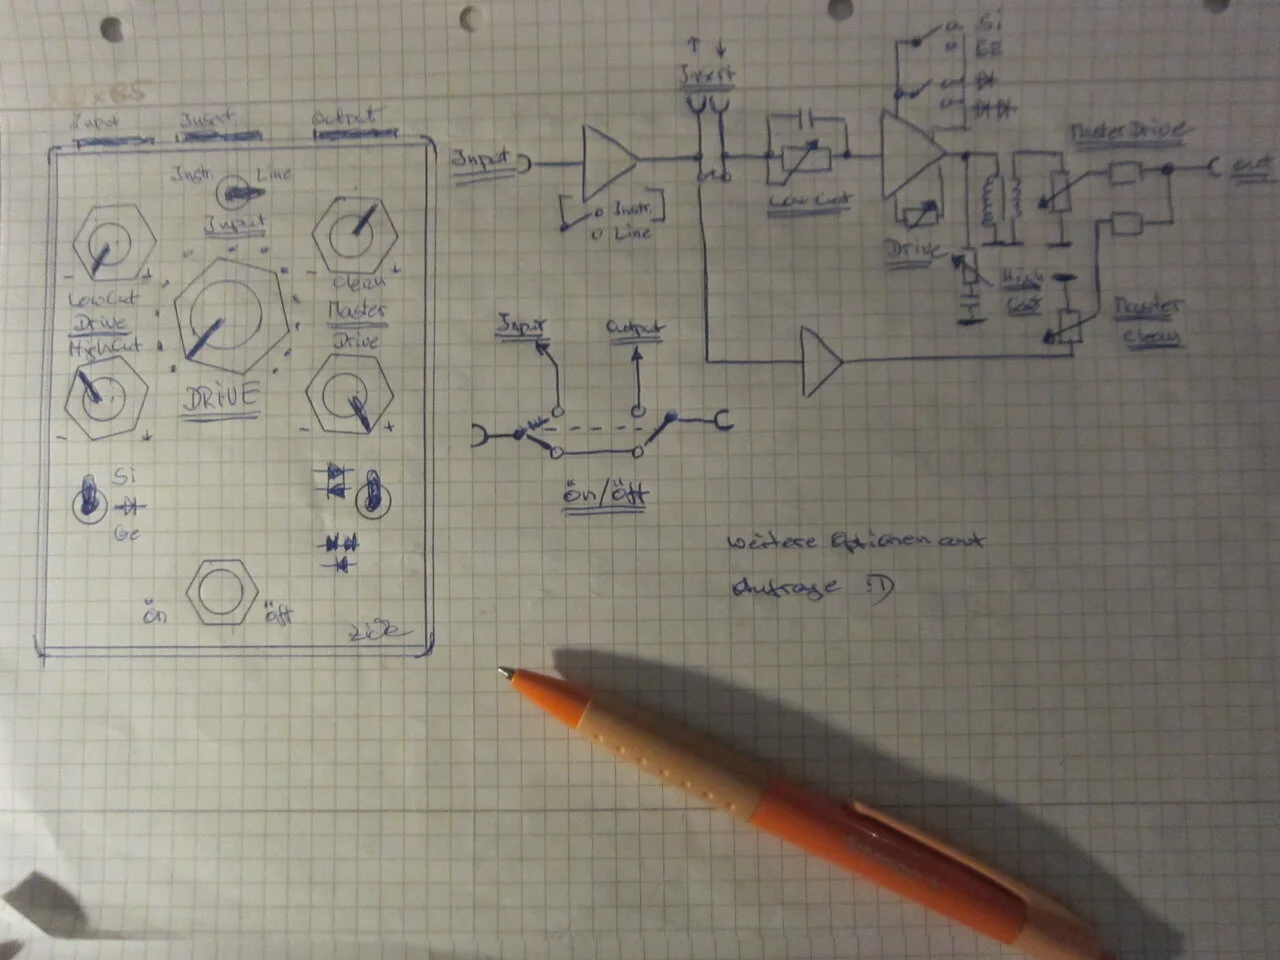 Input Insert Output
Instr. Line
Input
LowCut
Drive
HighCut
Clean
Master
Drive
DRIVE
- +
- +
- +
- +
Si
Ge
ön öff
Insert
Input
Instr.
Line
Low Cut
Si
Ge
Drive
High
Cut
Master Drive
out
Master
Clean
Input Output
ön/öff
weitere Optionen auf
Anfrage :D